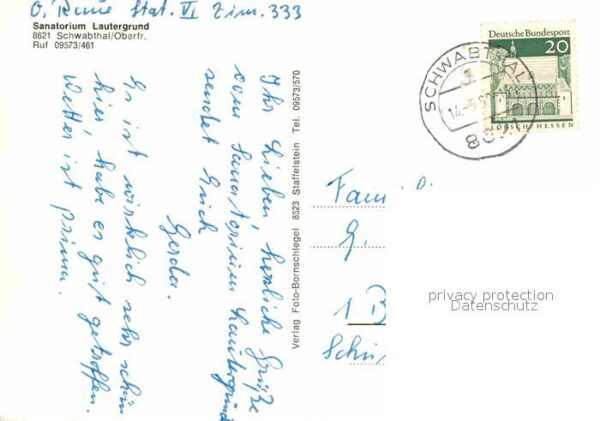 O. Reue Stat. VI Zim. 333
Sanatorium Lautergrund
8621 Schwabthal/Oberfr.
Ruf 09573/461
Ihr Lieben, herzliche Grüße
vom Sanatorium Lautergrund
sendet Euch
Gerda.
Es ist wirklich sehr schön
hier, habe es gut getroffen.
Wetter ist prima.
Verlag Foto-Bornschlegel 8623 Staffelstein Tel. 09573/570
Deutsche Bundespost
20
LORSCH/HESSEN
SCHWABTHAL
8621
Fam
G.
1 B
Schü
privacy protection
Datenschutz